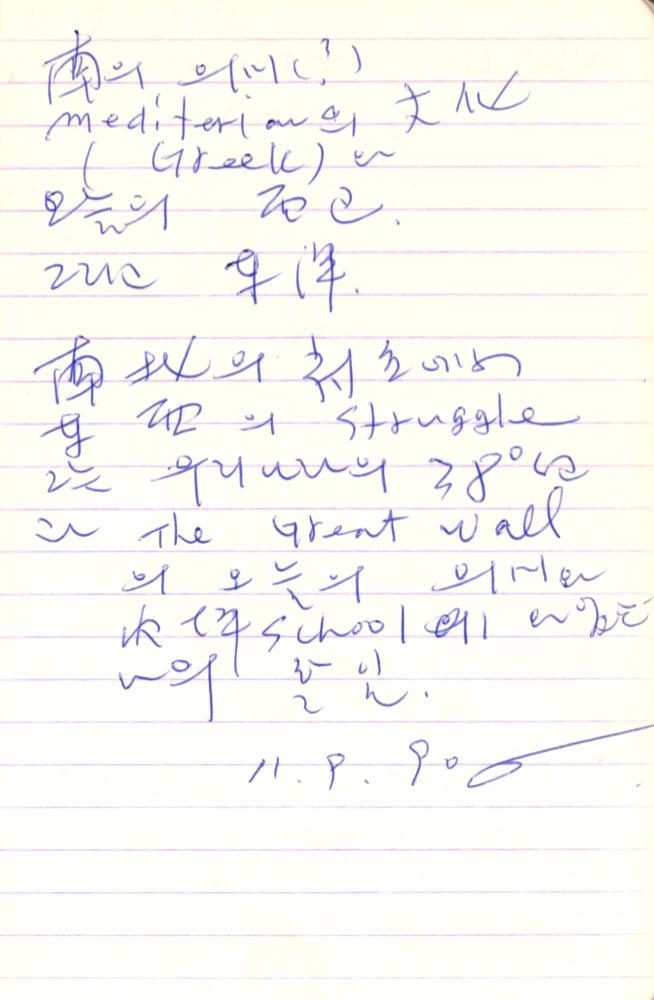 南의 의미(?)
mediterian의 文化
( Greek) 와
오늘의 西고.
그리고 東洋.
南北의 에서
東西의 struggle
또는 우리나라의 38°선
과 The Great Wall
의 오늘의 의미와
school에
나의 출입.
11. 9. 90